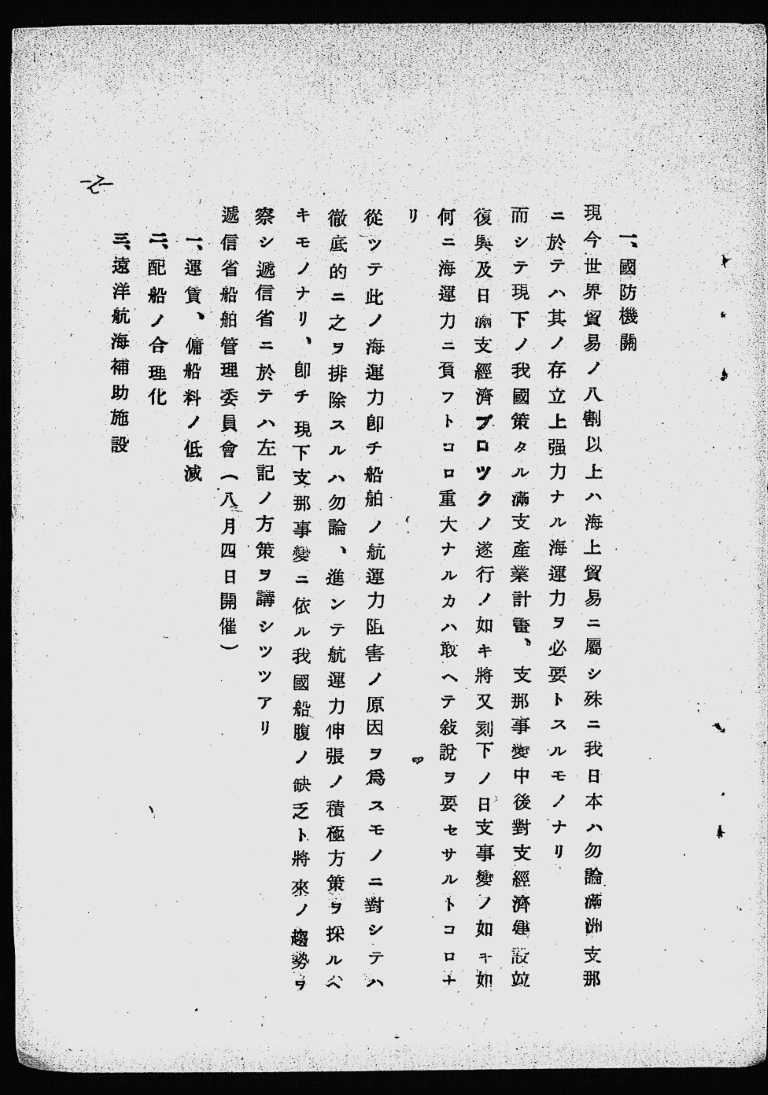 一、國防機關
現今世界貿易ノ八割以上ハ海上貿易ニ屬シ殊ニ我日本ハ勿論滿洲支那
ニ於テハ其ノ存立上强力ナル海運力ヲ必要トスルモノナリ
而シテ現下ノ我國策タル滿支產業計畫、支那事變中後對支經濟建設竝
復興及日滿支經濟ブロツクノ遂行ノ如キ將又刻下ノ日支事變ノ如キ如
何ニ海運力ニ負フトコロ重大ナルカハ敢ヘテ敍說ヲ要セサルトコロナ
リ
從ツテ此ノ海運力卽チ船舶ノ航運力阻害ノ原因ヲ爲スモノニ對シテハ
徹底的ニ之ヲ排除スルハ勿論、進ンテ航運力伸張ノ積極方策ヲ採ルヘ
キモノナリ、卽チ現下支那事變ニ依ル我國船腹ノ缺乏ト將來ノ趨勢ヲ
察シ遞信省ニ於テハ左記ノ方策ヲ講シツツアリ
遞信省船舶管理委員會(八月四日開催)
一、運賃、傭船料ノ低減
二、配船ノ合理化
三、遠洋航海補助施設